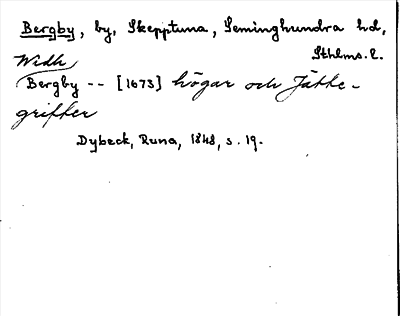 Bergby, by, Skepptuna, Seminghundra hd,
Sthlms. l.
Widh
Bergby -- [1673] högar och Jätte-
grifter
Dybeck, Runa, 1848, s. 19.